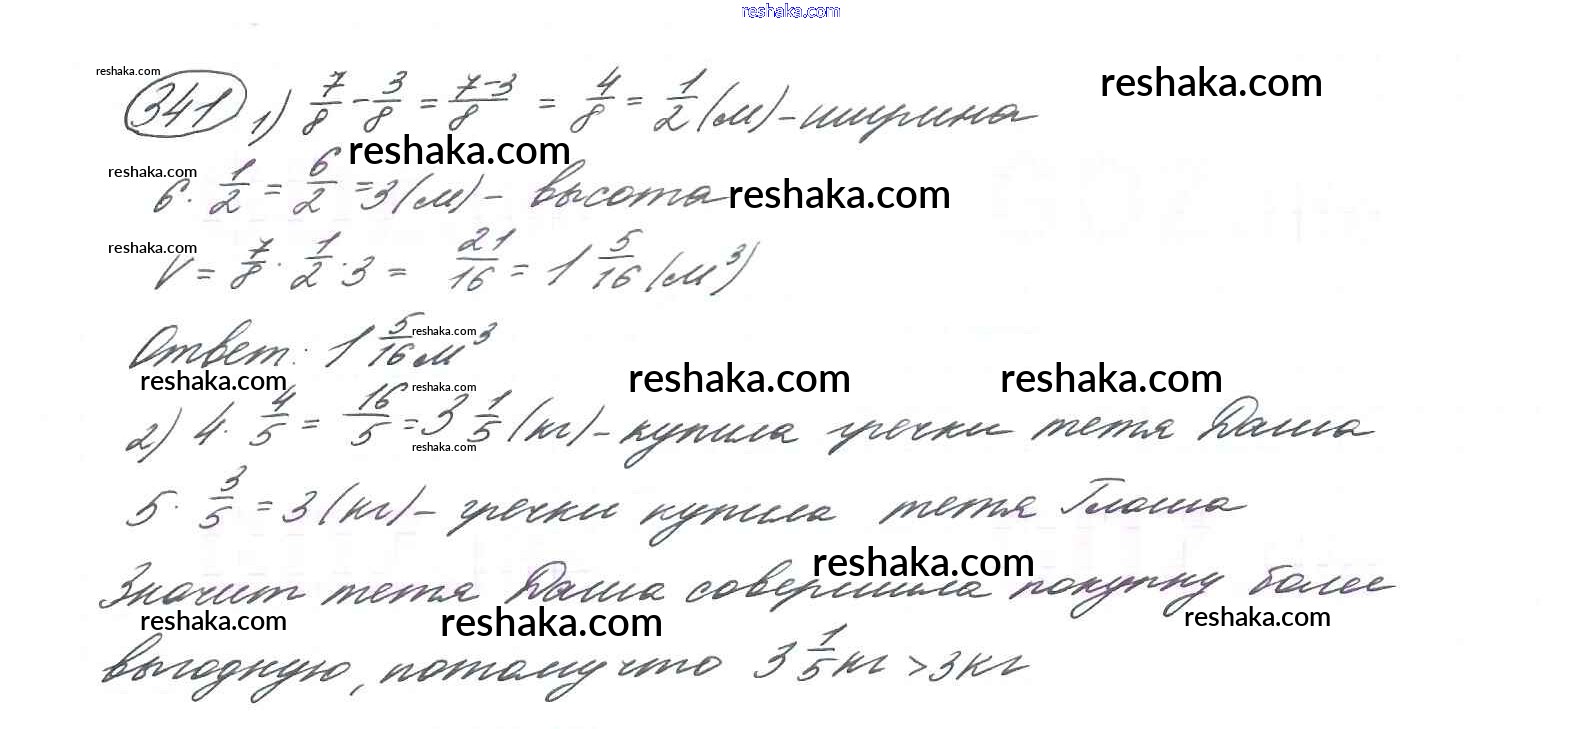 reshaka.com
reshaka.com
reshaka.com
341 1) 7/8 - 3/8 = 7-3/8 = 4/8 = 1/2 (м) - ширина
reshaka.com
reshaka.com
6 · 1/2 = 6/2 = 3 (м) - высота
reshaka.com
reshaka.com
V = 7/8 · 1/2 · 3 = 21/16 = 1 5/16 (м³)
Ответ: 1 5/16 м³
reshaka.com
reshaka.com
reshaka.com
reshaka.com
reshaka.com
2) 4 · 4/5 = 16/5 = 3 1/5 (кг) - купила гречки тетя Даша
reshaka.com
5 · 3/5 = 3 (кг) - гречки купила тетя Глаша
reshaka.com
Значит тетя Даша совершила покупку более
reshaka.com
reshaka.com
reshaka.com
выгодную, потому что 3 1/5 кг > 3 кг